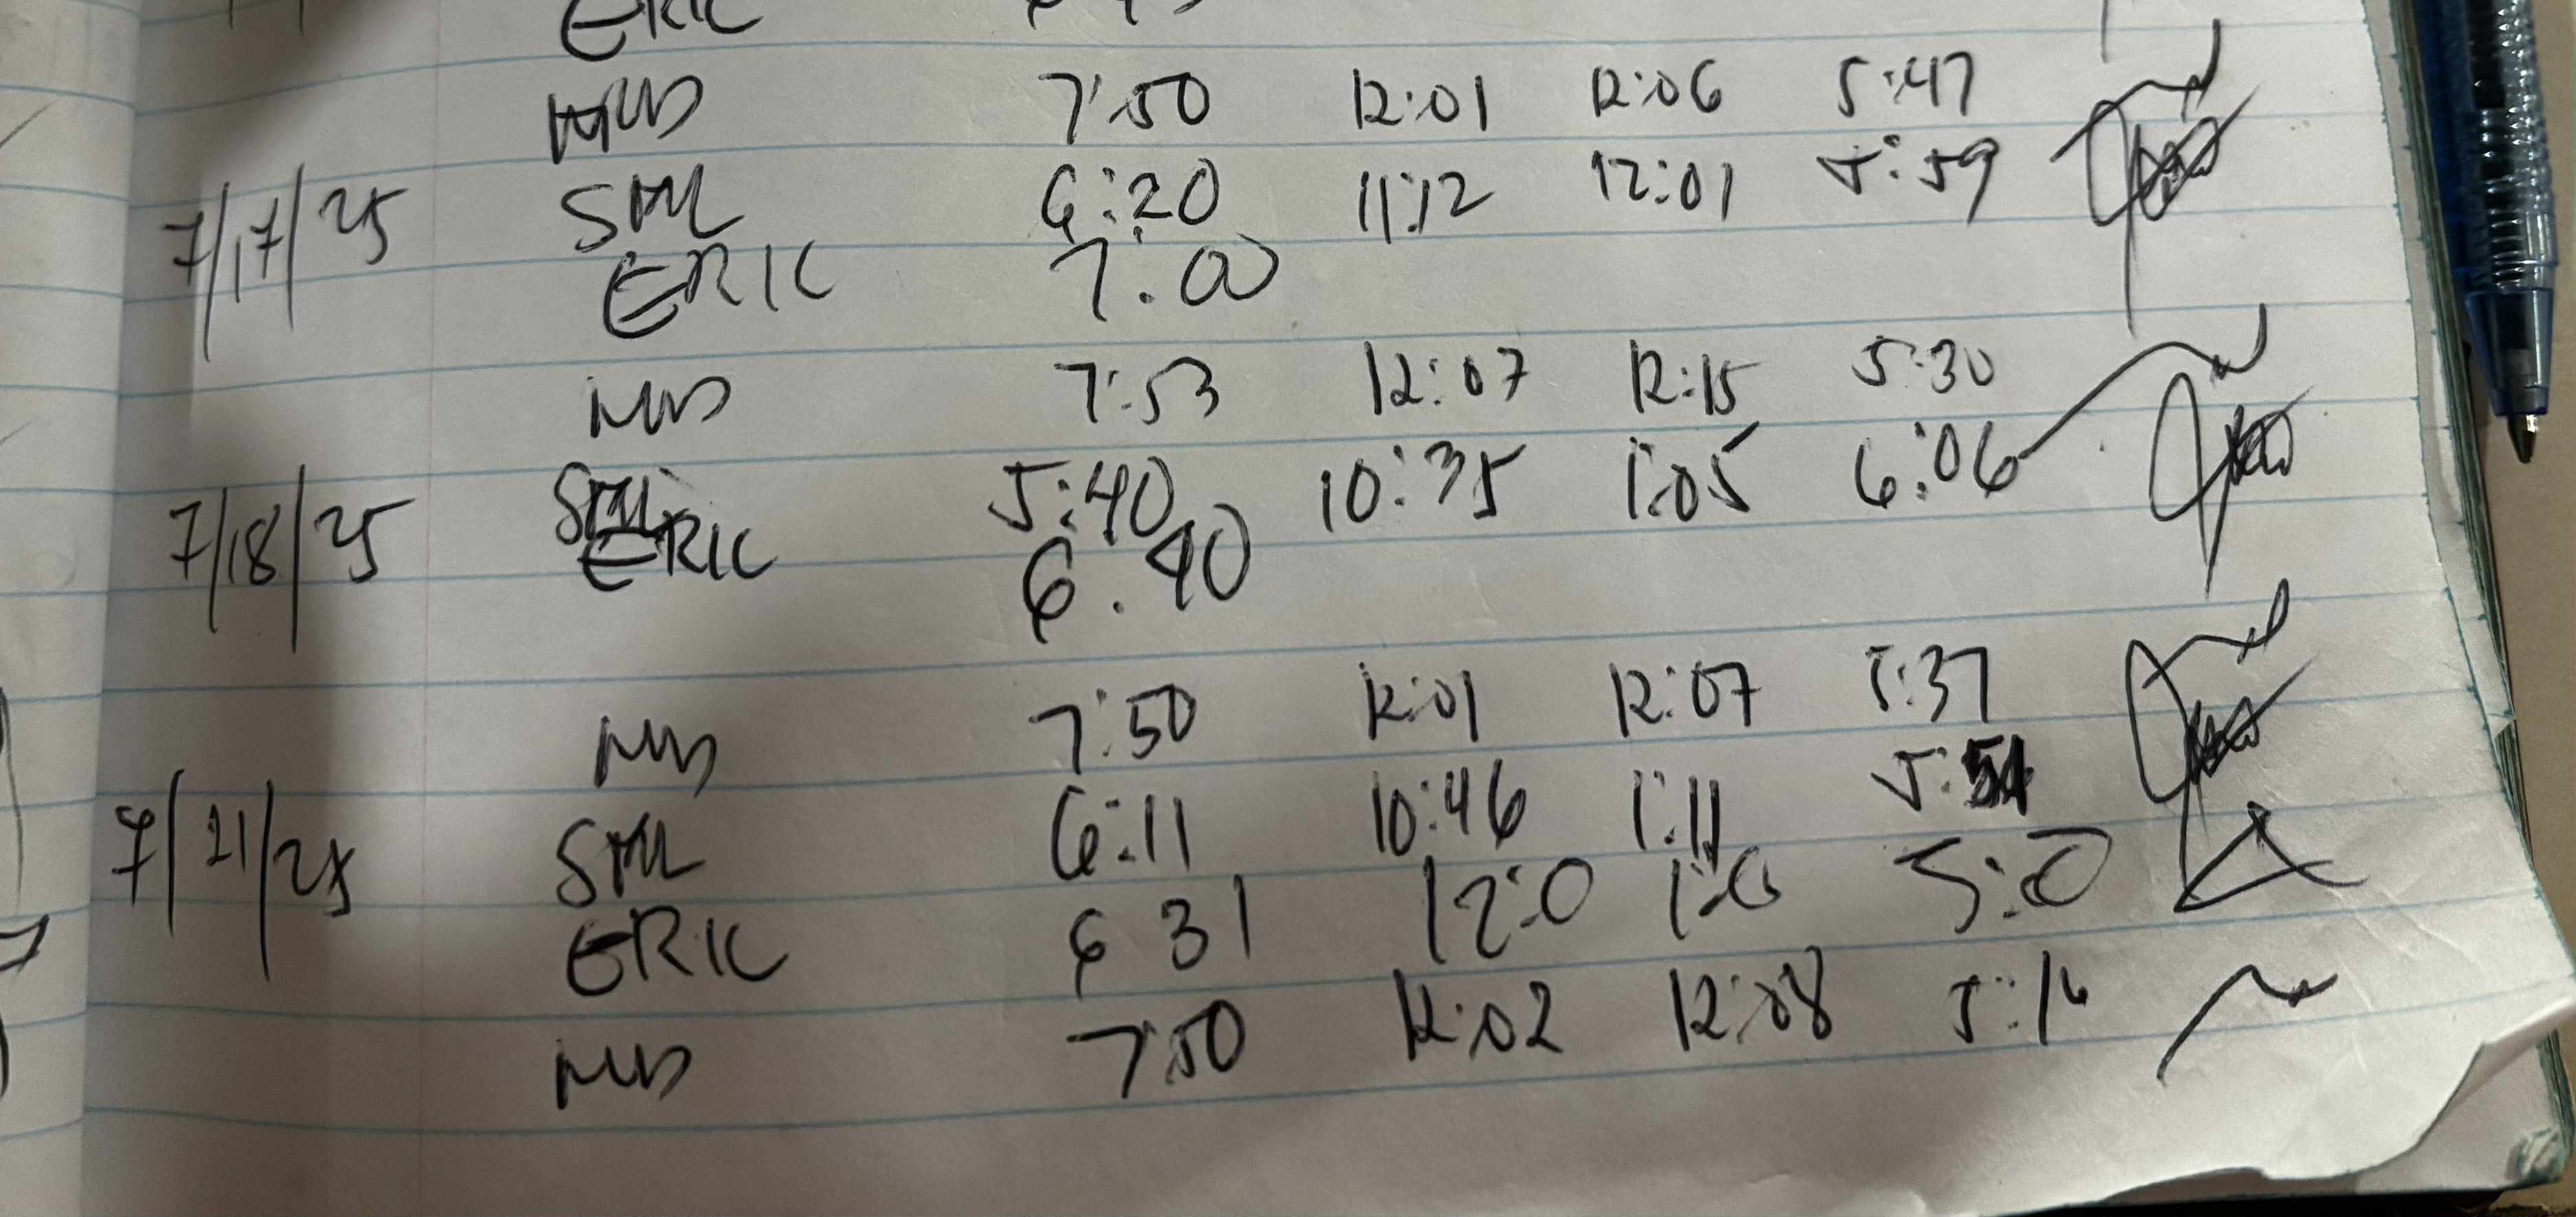 ERIC
7:50 12:01 12:06 5:47
7/17/25 SML 6:20 11:12 12:01 5:59
ERIC 7:00
MD 7:53 12:07 12:15 5:30
7/18/25 SML 5:40 10:35 1:05 6:06
ERIC 6.40
MD 7:50 12:01 12:07 5:37
7/21/25 SML 6:11 10:46 1:11 5:51
ERIC 6 31 12:0 1:0 5:0
MD 7:50 12:02 12:08 5:16